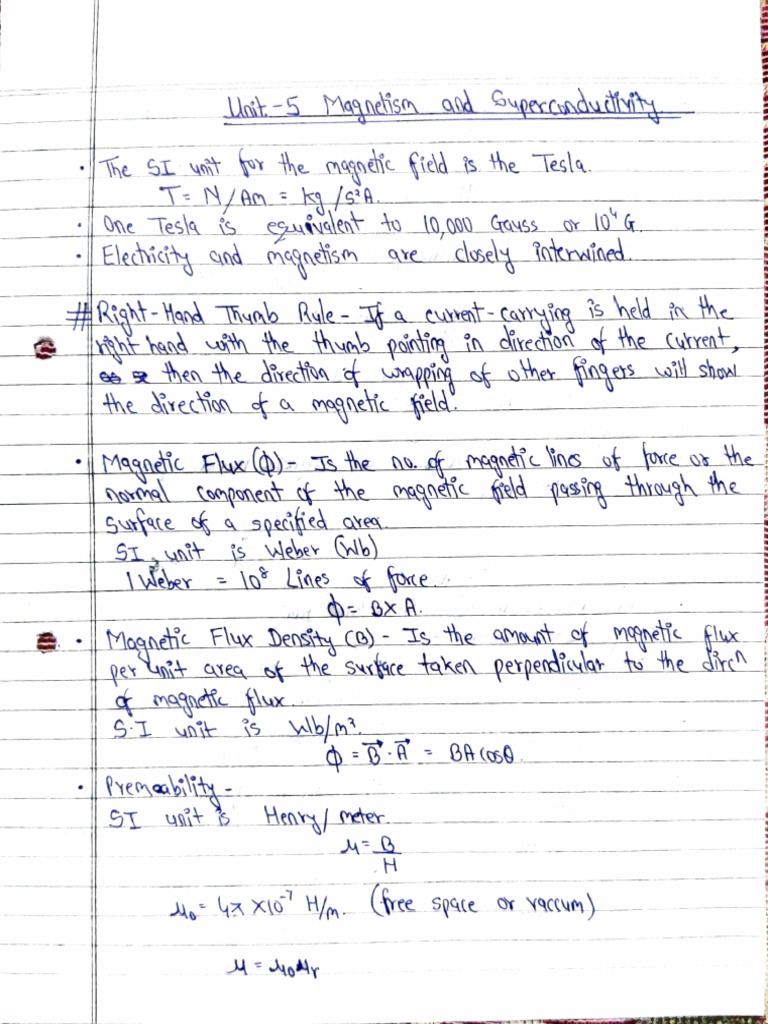 Unit-5 Magnetism and Superconductivity
• The SI unit for the magnetic field is the Tesla.
T = N/Am = kg/s²A.
• One Tesla is equivalent to 10,000 Gauss or 10⁴ G
• Electricity and magnetism are closely interwined.
# Right-Hand Thumb Rule - If a current-carrying is held in the
right hand with the thumb pointing in direction of the current,
then the direction of wrapping of other fingers will show
the direction of a magnetic field.
• Magnetic Flux (ϕ) - Is the no. of magnetic lines of force or the
normal component of the magnetic field passing through the
surface of a specified area
SI unit is Weber (Wb)
1 Weber = 10⁸ Lines of force.
ϕ = B × A.
• Magnetic Flux Density (B) - Is the amount of magnetic flux
per unit area of the surface taken perpendicular to the dircⁿ
of magnetic flux.
S.I unit is Wb/m².
ϕ = B⃗ · A⃗ = BA cosθ
• Premeability -
SI unit is Henry/meter
μ = B/H
μ₀ = 4π × 10⁻⁷ H/m. (free space or vaccum)
μ = μ₀μᵣ